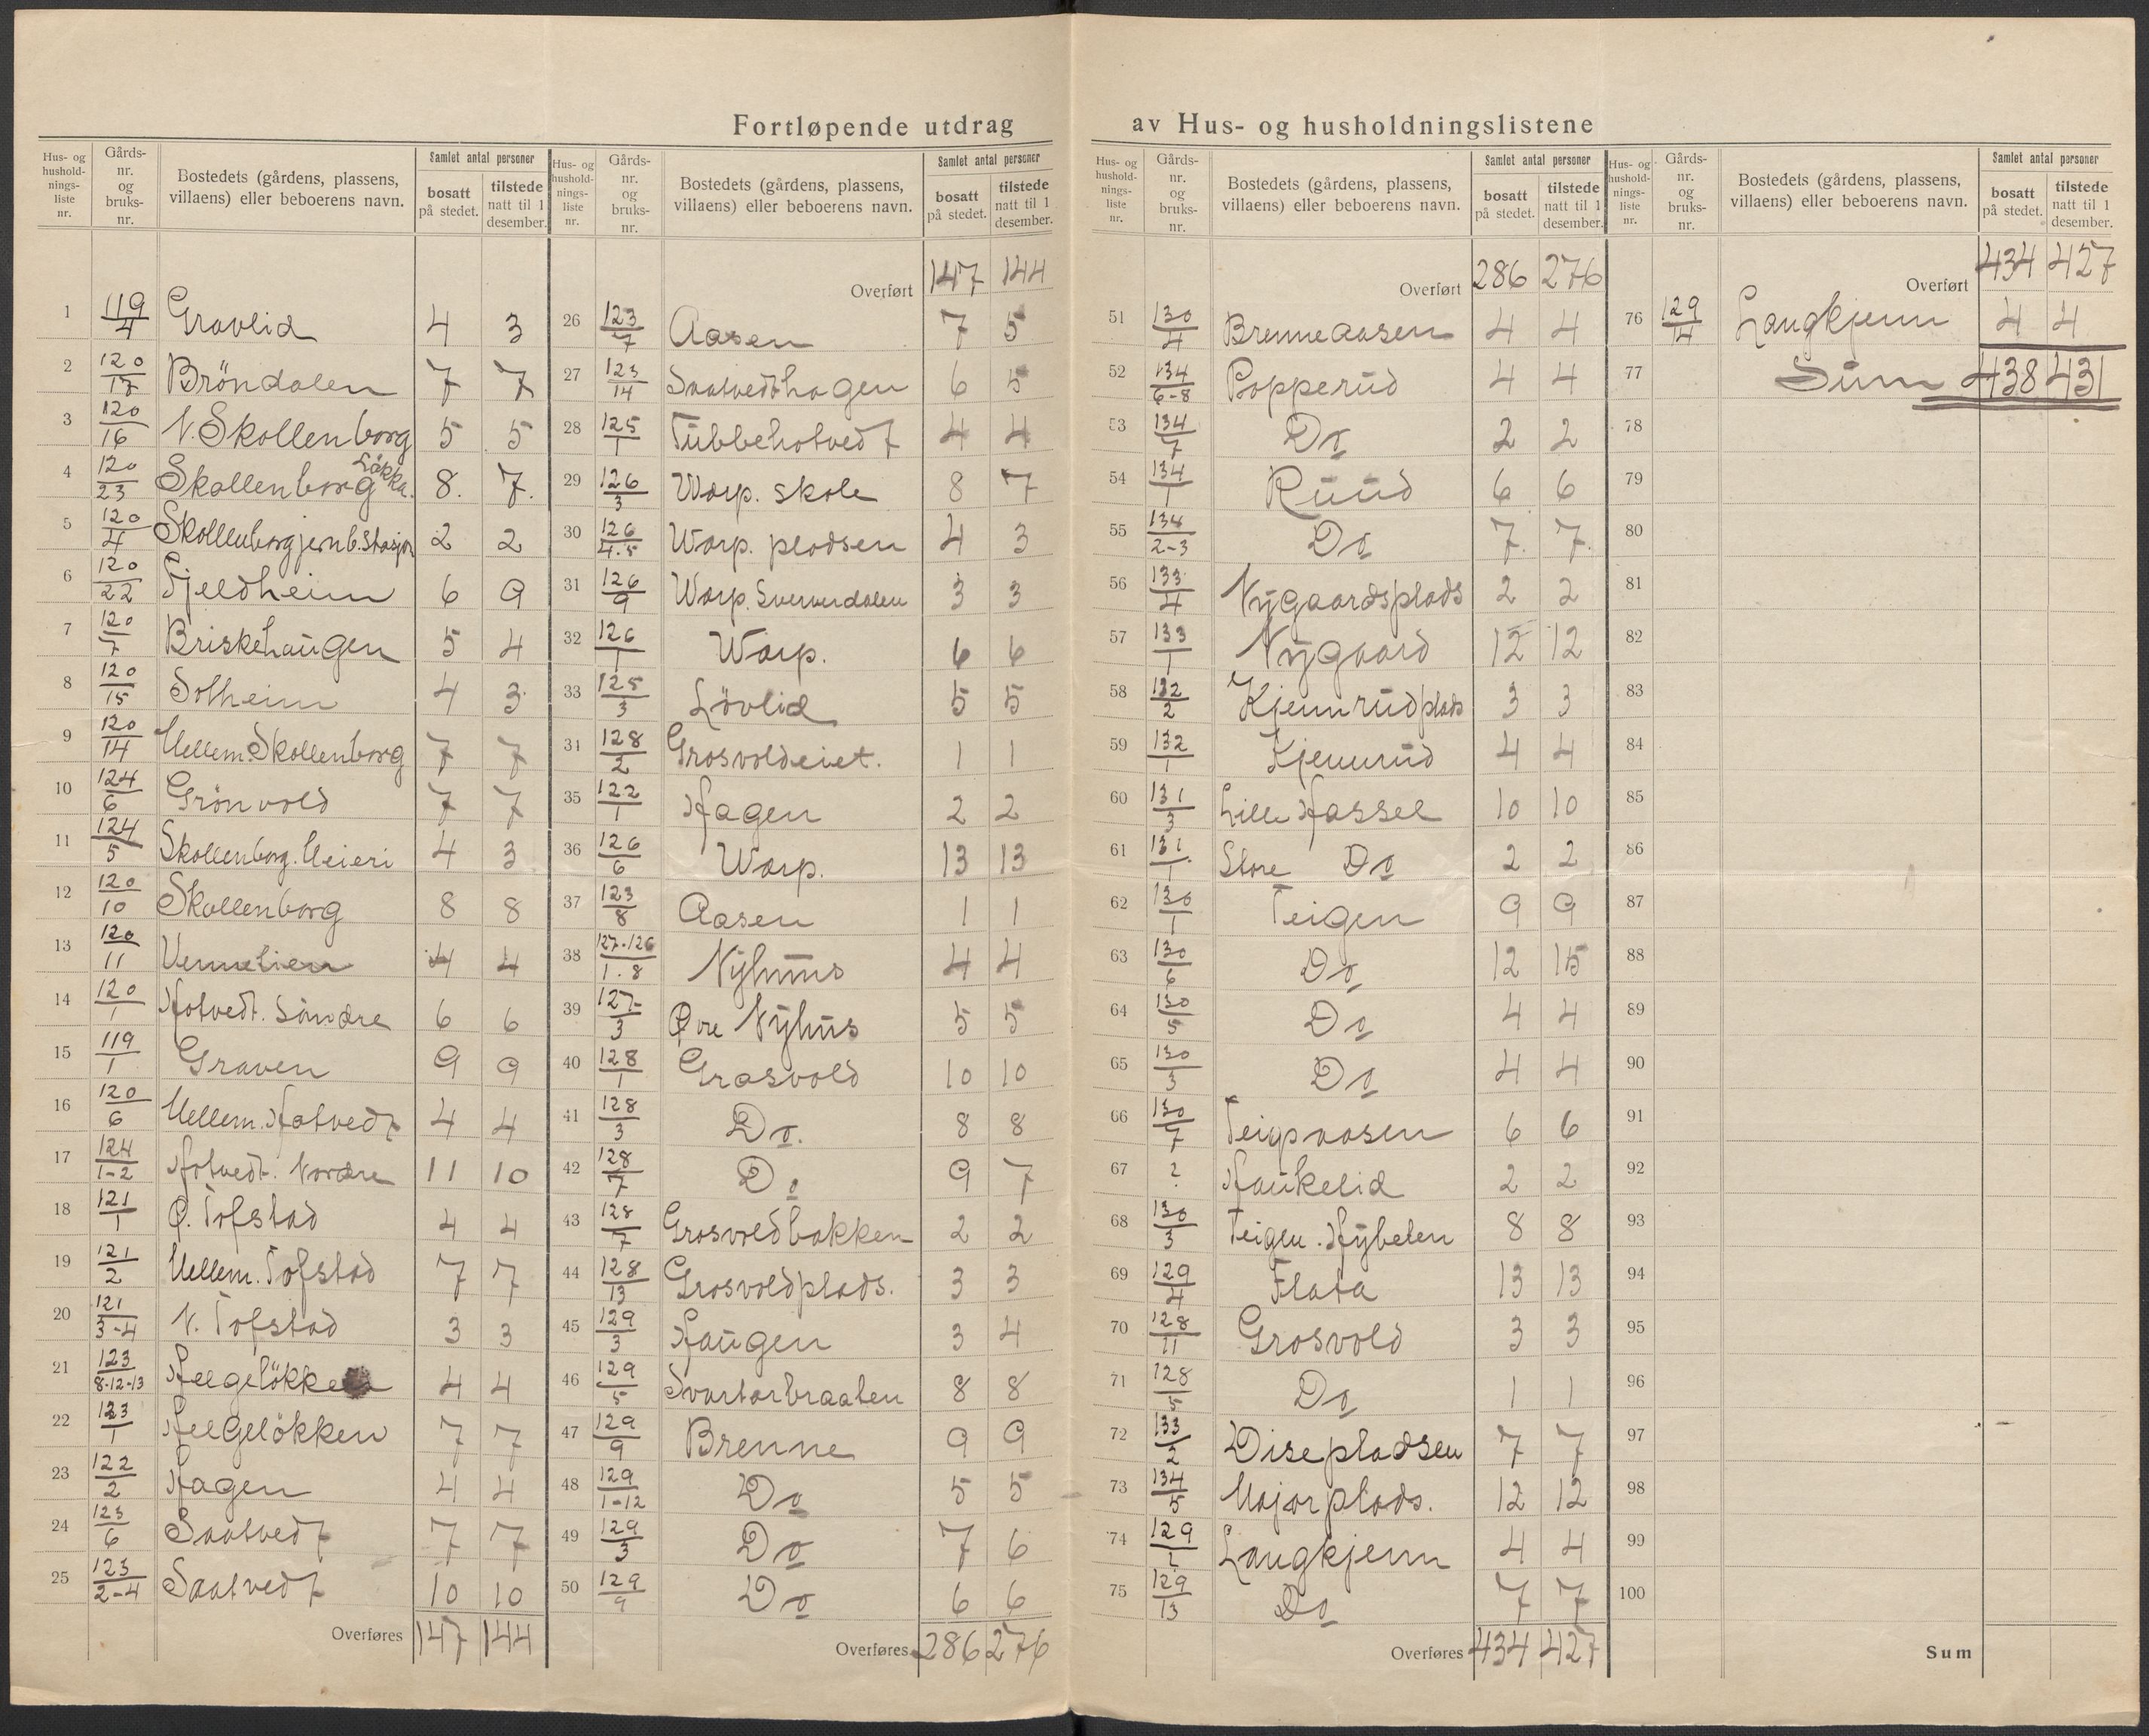 Fortløpende utdrag av Hus- og husholdningslistene
Hus- og hushold-nings-liste nr. | Gårds-nr. og bruks-nr. | Bostedets (gårdens, plassens, villaens) eller beboerens navn. | Samlet antal personer | bosatt på stedet. | tilstede natt til 1 desember.
1 119/4 Gravlid 4 3
2 120/17 Bröndalen 7 7
3 120/16 N. Skollenborg 5 5
4 120/23 Skollenborg Lökka. 8. 7.
5 120/4 Skollenborg jernb. stasjon 2 2
6 120/22 Fjeldheim 6 9
7 120/7 Briskehaugen 5 4
8 120/15 Solheim 4 3
9 120/14 Mellem. Skollenborg 7 7
10 124/6 Grönvold 7 7
11 124/5 Skollenborg. Meieri 4 3
12 120/10 Skollenborg 8 8
13 120/11 Vennelien 4 4
14 120/1 Hotvedt. Söndre 6 6
15 119/1 Graven 9 9
16 120/6 Mellem. Hotvedt 4 4
17 124/1-2 Hotvedt. Nordre 11 10
18 121/1 Ø. Tofstad 4 4
19 121/2 Mellem. Tofstad 7 7
20 121/3-4 N. Tofstad 3 3
21 123/8-12-13 Helgelökken 4 4
22 123/1 Helgelökken 7 7
23 122/2 Hagen 4 4
24 123/6 Saatvedt 7 7
25 123/2-4 Saatvedt 10 10
Overføres 147 144
Hus- og hushold-nings-liste nr. | Gårds-nr. og bruks-nr. | Bostedets (gårdens, plassens, villaens) eller beboerens navn. | Samlet antal personer | bosatt på stedet. | tilstede natt til 1 desember.
Overført 147 144
26 123/7 Aasen 7 5
27 123/14 Saatvedthagen 6 5
28 125/1 Tubbehotvedt 4 4
29 126/3 Worp. skole 8 7
30 126/4.5 Worp. pladsen 4 3
31 126/9 Worp. Svenerdalen 3 3
32 126/1 Worp. 6 6
33 125/3 Lövlid 5 5
34 128/2 Grosvoldeiet. 1 1
35 122/1 Hagen 2 2
36 126/6 Worp. 13 13
37 123/8 Aasen 1 1
38 127.126/1.8 Nÿhuus 4 4
39 127/3 Øvre Nÿhus 5 5
40 128/1 Grosvold 10 10
41 128/3 Do. 8 8
42 128/7 Do 9 7
43 128/7 Grosvoldbakken 2 2
44 128/13 Grosvoldplads. 3 3
45 129/3 Haugen 3 4
46 129/5 Svartorbraaten 8 8
47 129/9 Brenne 9 9
48 129/1-12 Do 5 5
49 129/3 Do 7 6
50 129/9 Do 6 6
Overføres 286 276
Hus- og hushold-nings-liste nr. | Gårds-nr. og bruks-nr. | Bostedets (gårdens, plassens, villaens) eller beboerens navn. | Samlet antal personer | bosatt på stedet. | tilstede natt til 1 desember.
Overført 286 276
51 130/4 Brenneaasen 4 4
52 134/6-8 Popperud 4 4
53 134/7 Do 2 2
54 134/1 Ruud 6 6
55 134/2-3 Do 7. 7.
56 133/4 Nÿgaardsplads 2 2
57 133/1 Nÿgaard 12 12
58 132/2 Kjennrudplads 3 3
59 132/1 Kjennrud 4 4
60 131/3 Lille Hassel 10 10
61 131/1 Store Do 2 2
62 130/1 Teigen 9 9
63 130/6 Do 12 15
64 130/5 Do 4 4
65 130/3 Do 4 4
66 130/7 Teigsaasen 6 6
67 ? Haukelid 2 2
68 130/3 Teigen. Hÿbelen 8 8
69 129/4 Flata 13 13
70 128/11 Grosvold 3 3
71 128/5 Do 1 1
72 133/2 Disepladsen 7 7
73 134/5 Majorplads. 12 12
74 129/1 Langkjenn 4 4
75 129/13 Do 7 7
Overføres 434 427
Hus- og hushold-nings-liste nr. | Gårds-nr. og bruks-nr. | Bostedets (gårdens, plassens, villaens) eller beboerens navn. | Samlet antal personer | bosatt på stedet. | tilstede natt til 1 desember.
Overført 434 427
76 129/14 Langkjenn 4 4
77 Sum 438 431
78
79
80
81
82
83
84
85
86
87
88
89
90
91
92
93
94
95
96
97
98
99
100
Sum